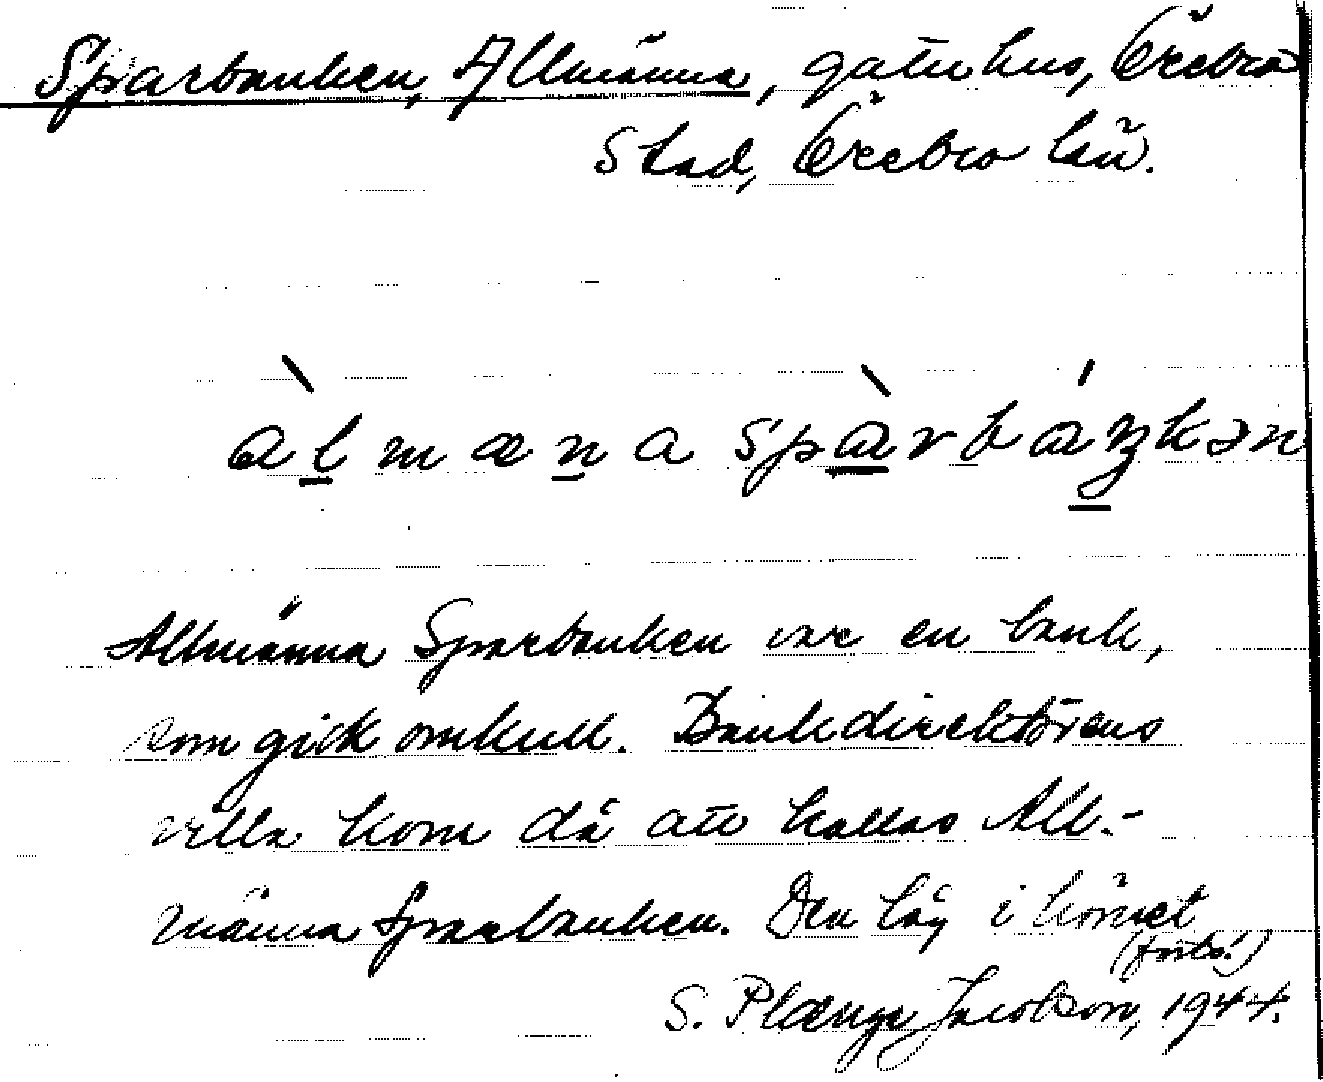 Sparbanken, Allmänna, gatuhus, Örebro
stad, Örebro län.
àlmæna spàrbáŋkən
Allmänna Sparbanken var en bank,
som gick omkull. Bankdirektörens
villa kom då att kallas All-
männa Sparbanken. Den låg i hörnet
(forts.)
S. Plænge Jacobson, 1944.